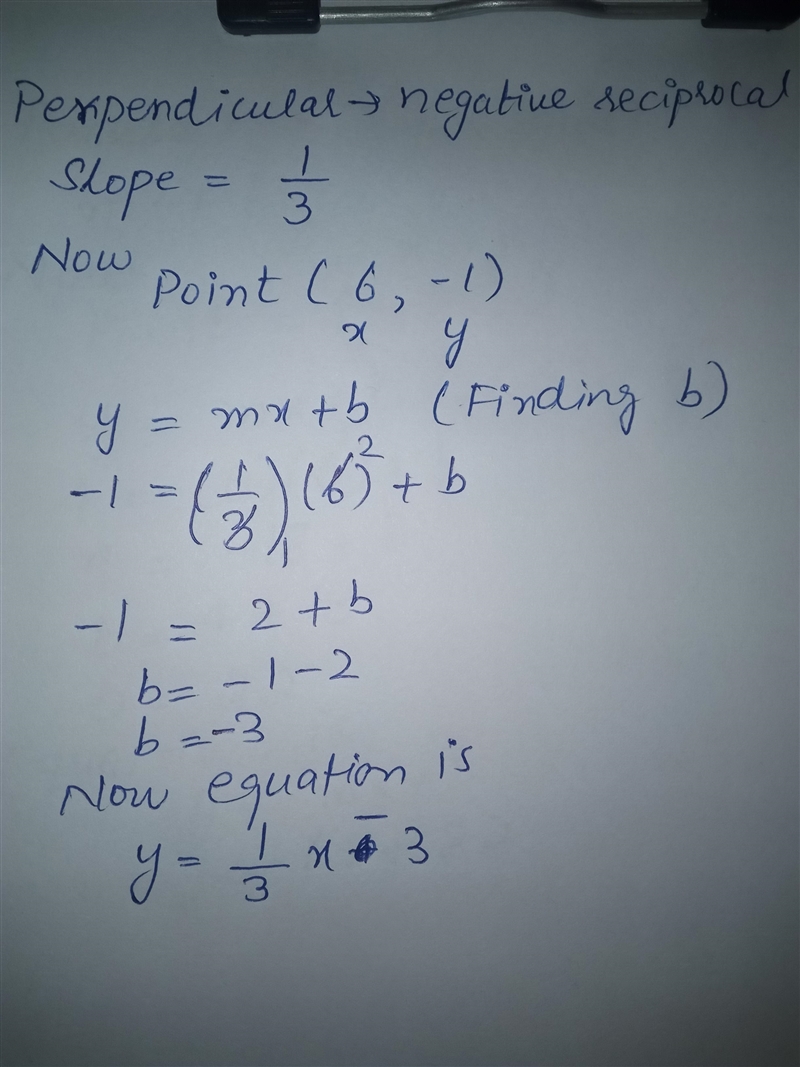 Perpendicular → negative reciprocal
Slope = 1/3
Now Point (6, -1)
x y
y = mx + b (Finding b)
-1 = (1/3)1 (6)2 + b
-1 = 2 + b
b = -1 - 2
b = -3
Now equation is
y = 1/3 x - 3